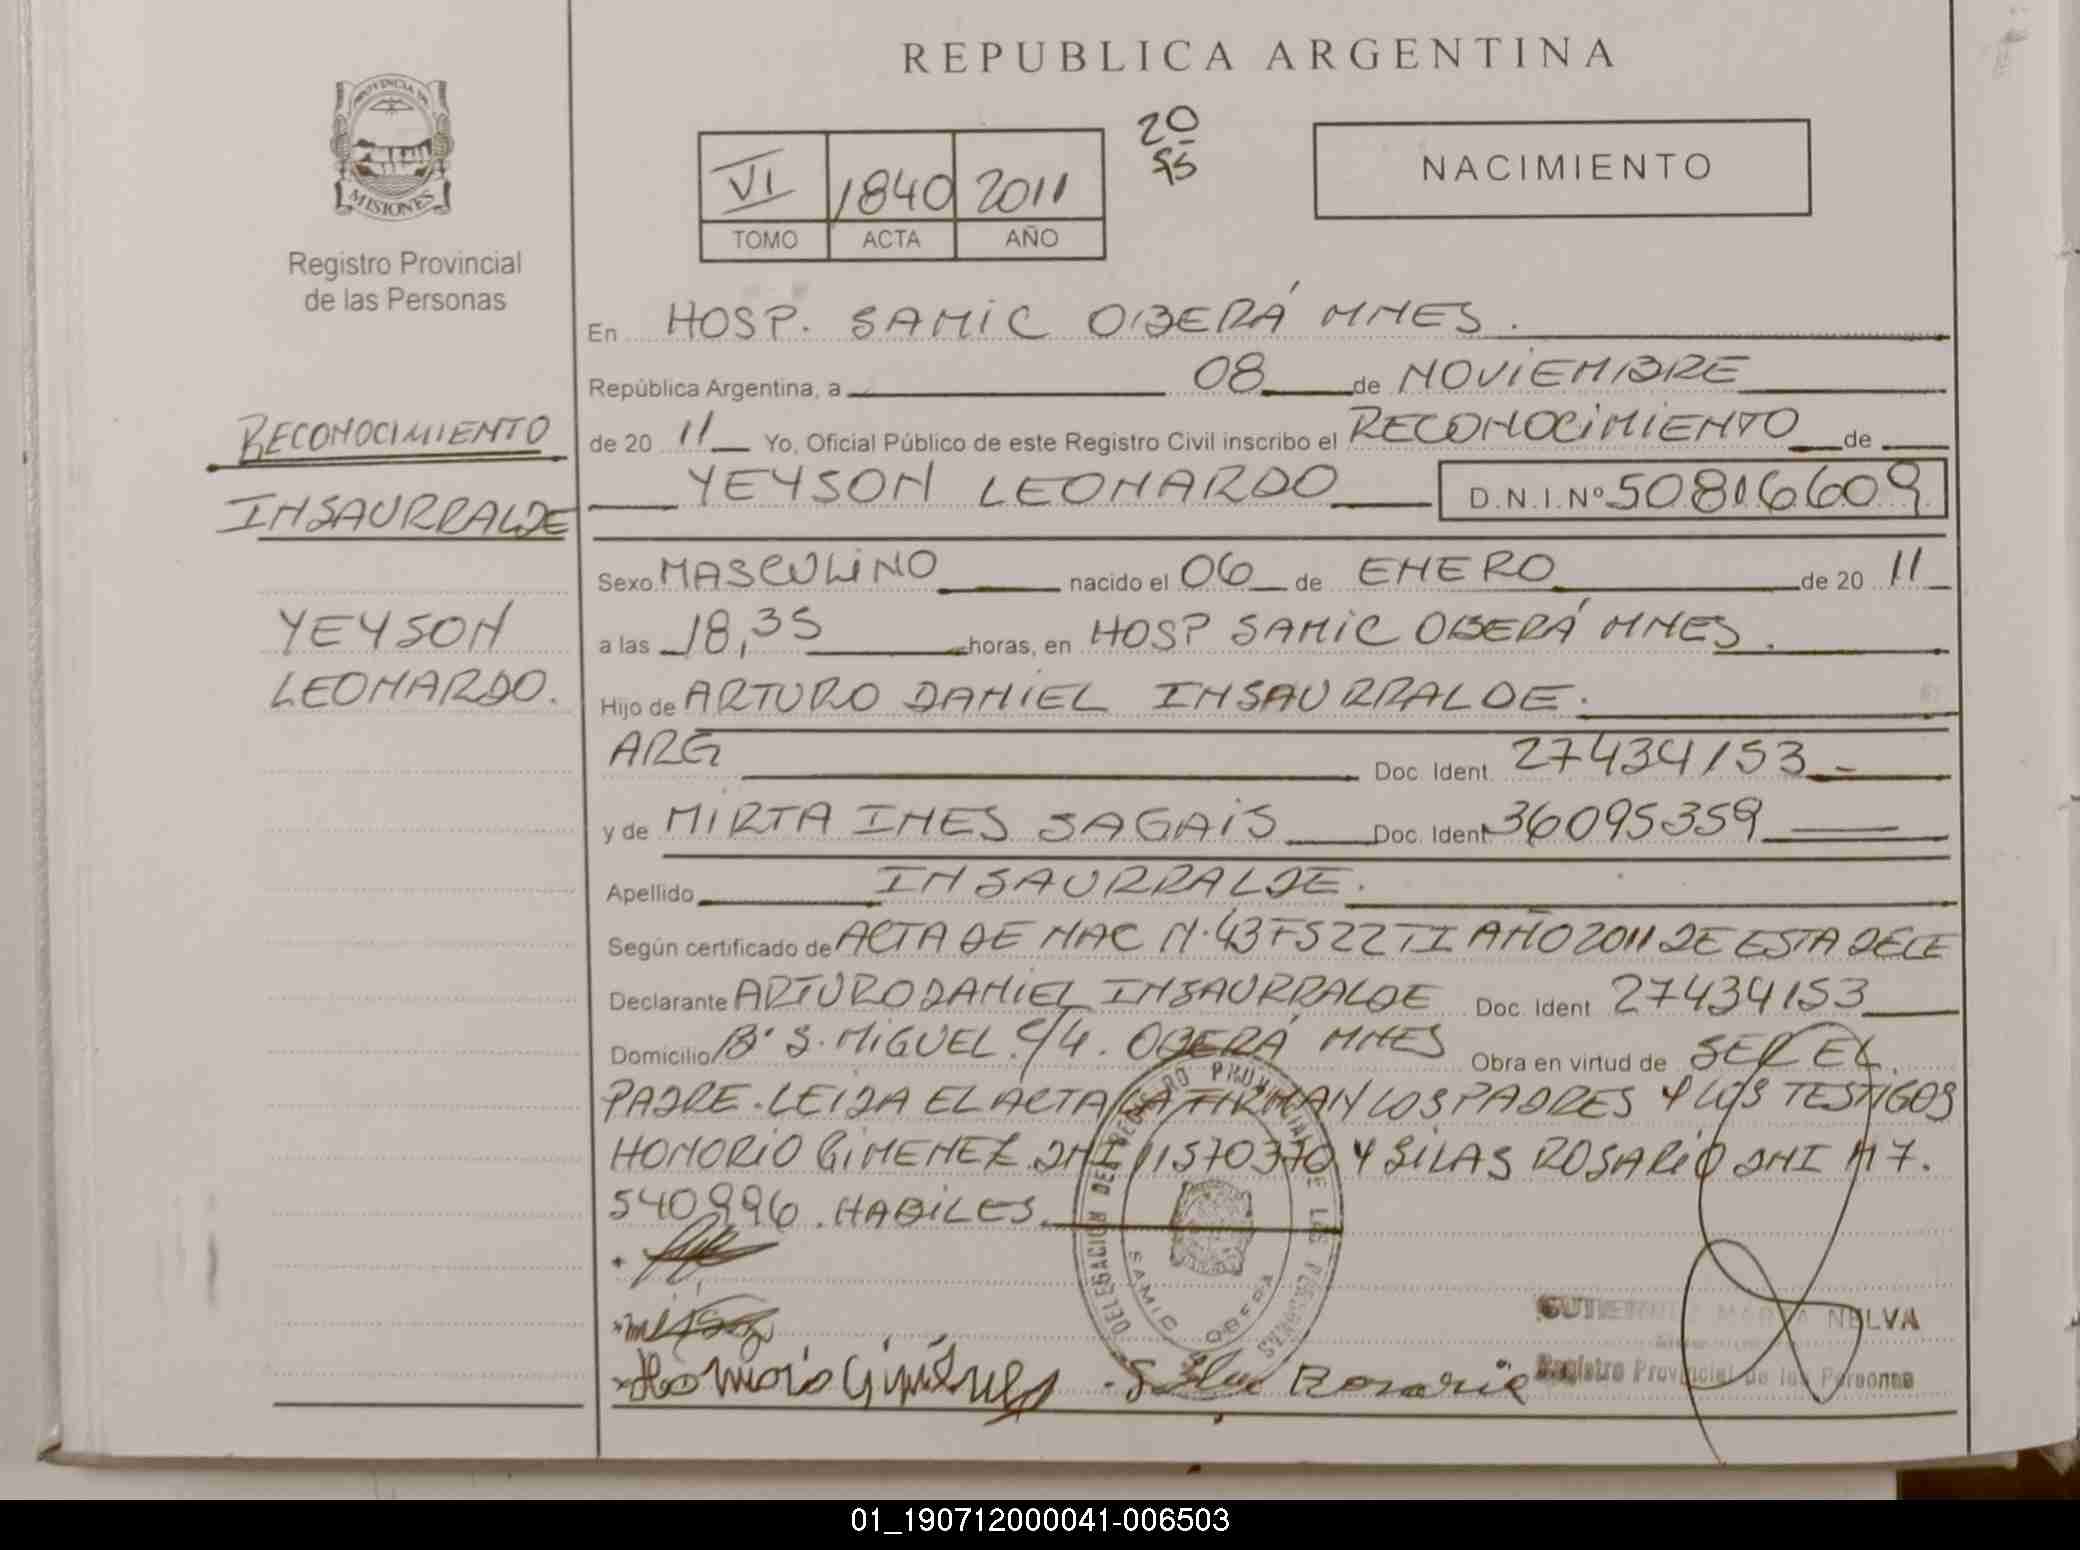 REPUBLICA ARGENTINA
PROVINCIA DE
MISIONES
Registro Provincial
de las Personas
VI 1840 2011
TOMO ACTA AÑO
20
NACIMIENTO
En HOSP. SAMIC OBERÁ MNES.
República Argentina, a 08 de NOVIEMBRE
de 20 11 Yo, Oficial Público de este Registro Civil inscribo el RECONOCIMIENTO de
YEYSON LEONARDO D.N.I.Nº 50816609
RECONOCIMIENTO
INSAURRALDE
YEYSON
LEONARDO.
Sexo MASCULINO nacido el 06 de ENERO de 20 11
a las 18,35 horas, en HOSP SAMIC OBERÁ MNES.
Hijo de ARTURO DANIEL INSAURRALDE.
ARG Doc. Ident. 27434153
y de MIRTA INES SAGAIS Doc. Ident 36095359
Apellido INSAURRALDE.
Según certificado de ACTA DE NAC N. 43 F 522 TI AÑO 2011 DE ESTA DELE
Declarante ARTURO DANIEL INSAURRALDE Doc. Ident 27434153
Domicilio B° S. MIGUEL. C/4. OBERÁ MNES Obra en virtud de SER EL
PADRE. LEIDA EL ACTA LA FIRMAN LOS PADRES Y LOS TESTIGOS
HONORIO GIMENEZ DNI 11570370 Y SILAS ROSARIO DNI M 7.
540996. HABILES
DELEGACION DEL REGISTRO PROVINCIAL DE LAS PERSONAS
SAMIC OBERA
NELVA
Honorio Giménez Silas Rosario
Registro Provincial de las Personas
01_190712000041-006503